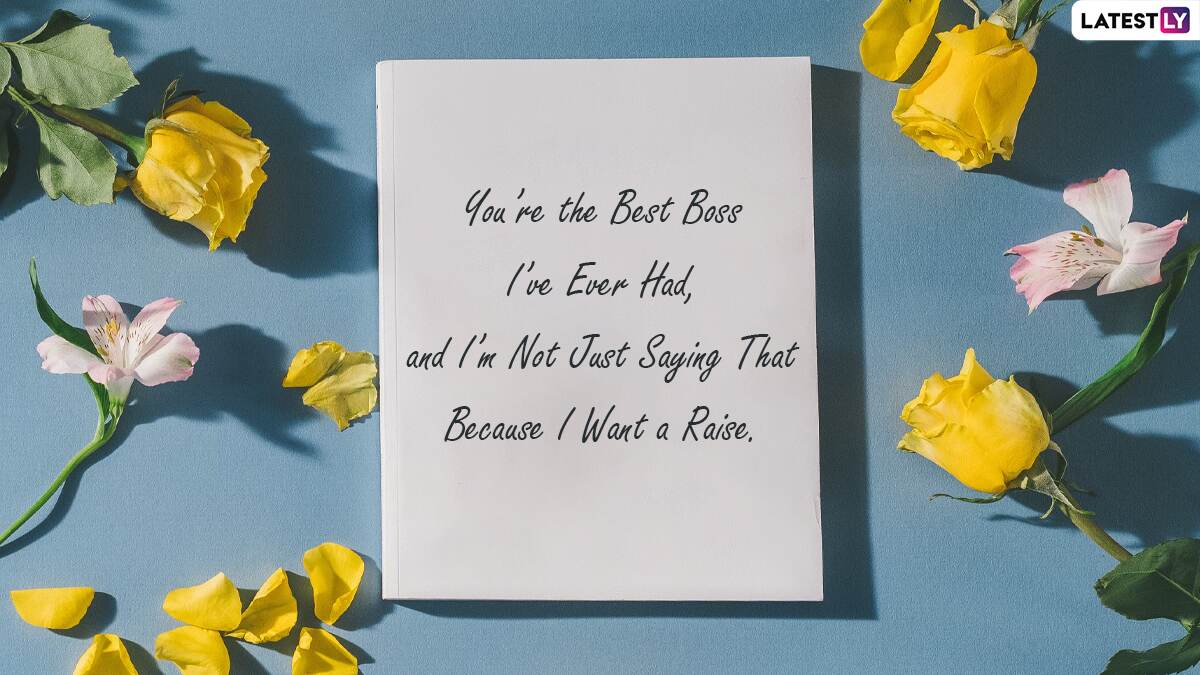 LATESTLY
You're the Best Boss
I've Ever Had,
and I'm Not Just Saying That
Because I Want a Raise.